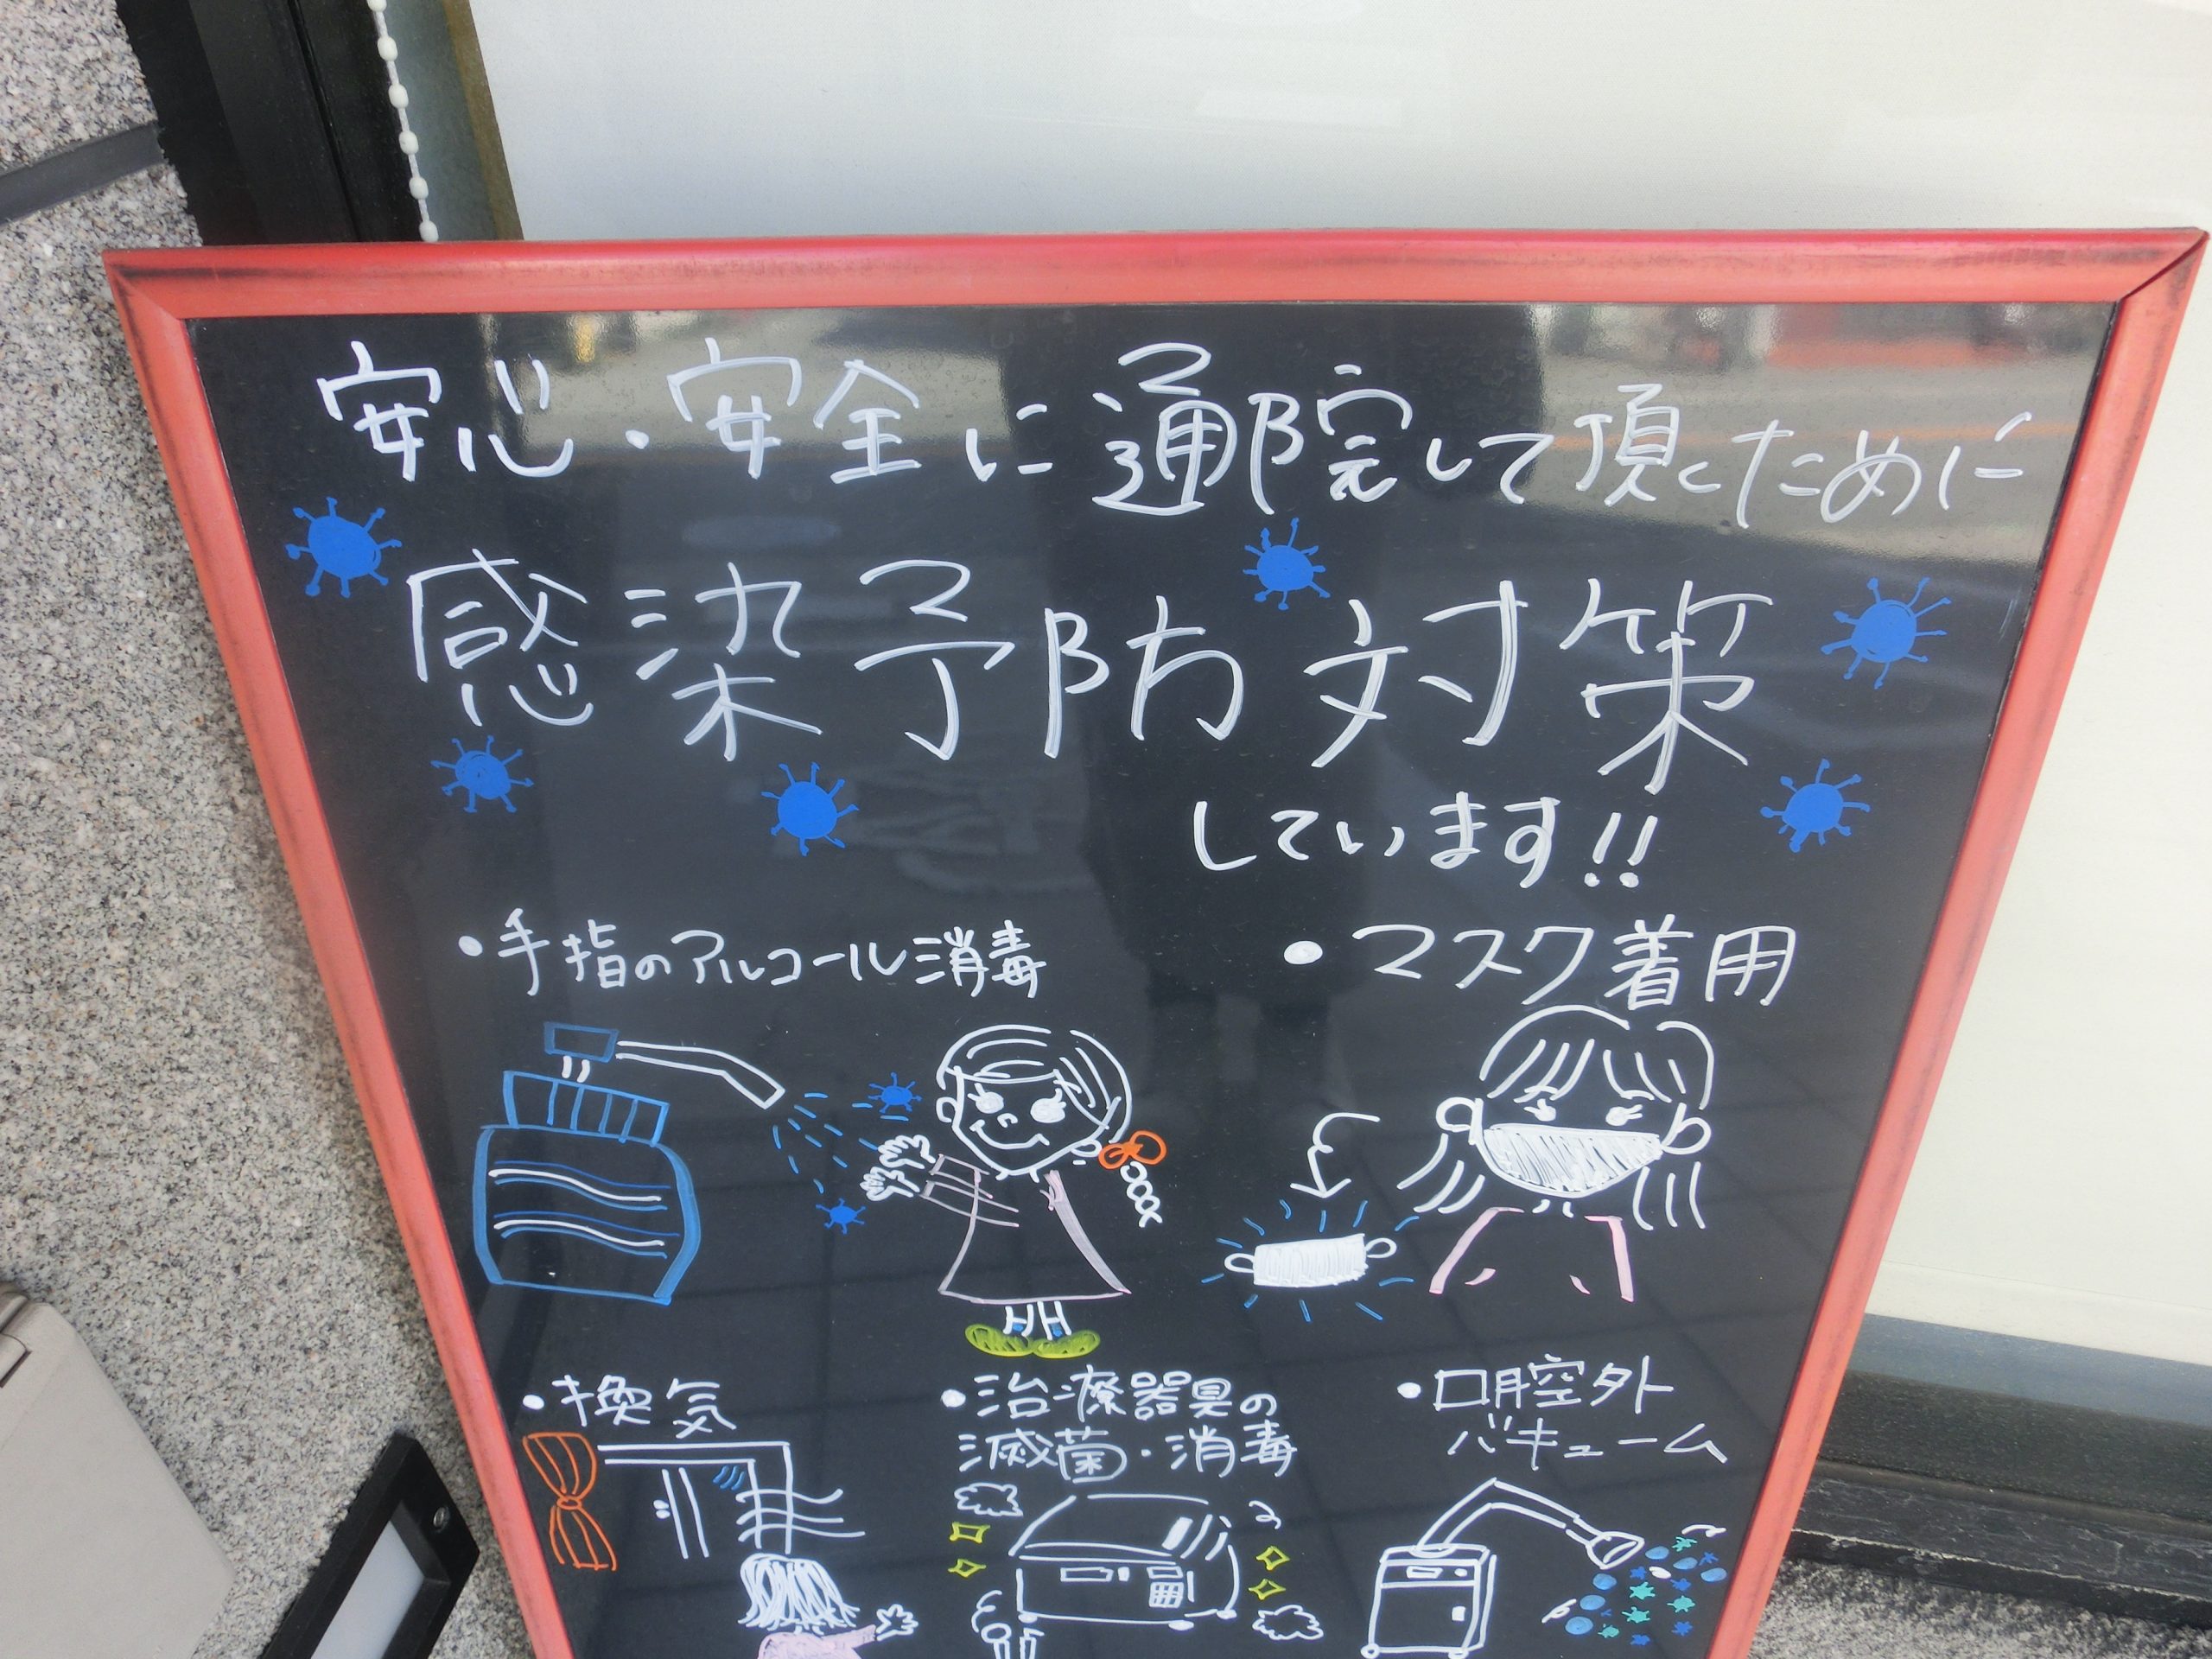 安心・安全に通院して頂くために
感染予防対策
しています!!
・手指のアルコール消毒
・マスク着用
・換気
・治療器具の
滅菌・消毒
・口腔外
バキューム